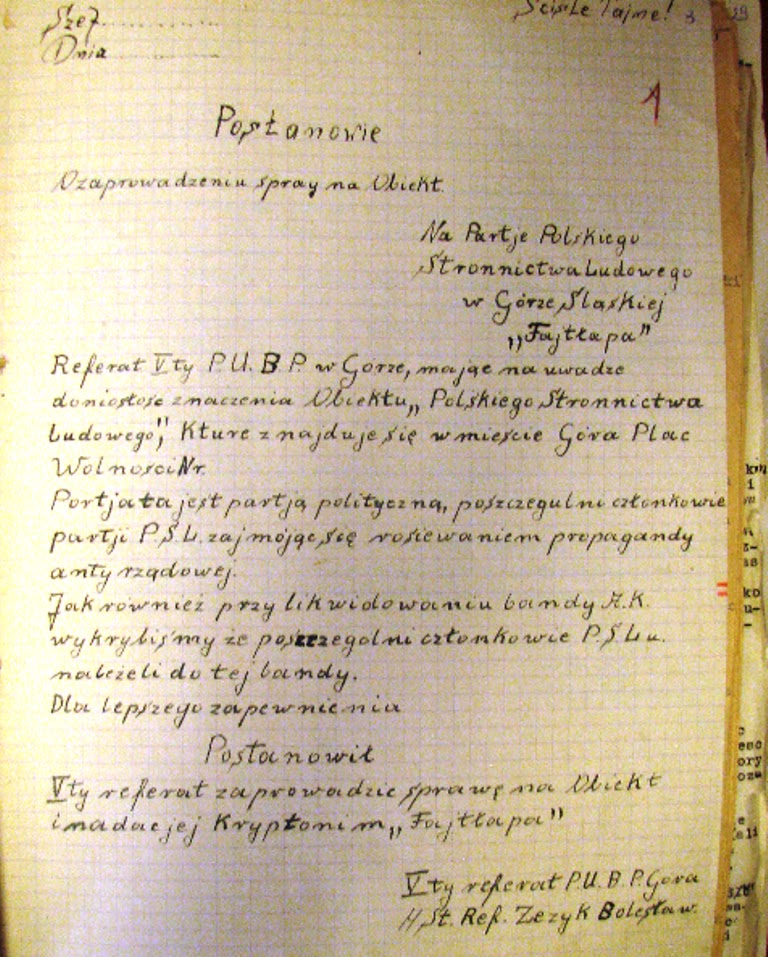 Szef..............
Dnia..............
Ściśle Tajne! 3
1
Postanowie
Ozaprowadzeniu spray na Obiekt.
Na Partje Polskiego
Stronnictwa Ludowego
w Górze Śląskiej
„Fajtłapa”
Referat Vty P.U.B.P. w Gorze, mając na uwadze
doniosłosc znaczenia Obiektu„ Polskiego Stronnictwa
Ludowego,” Kture znajduje się w mieście Góra Plac
Wolnosci Nr.
Portjata jest partją polityczną, poszczegulni członkowie
partji P.S.L. zajmójąc się rosiewaniem propagandy
anty rządowej.
Jak również przy likwidowaniu bandy A.K.
wykryliśmy że poszczegolni członkowie P.S.L u.
należeli do tej bandy.
Dla lepszego zapewnienia
Postanowił
Vty referat zaprowadzic sprawę na Obiekt
i nadac jej Kryptonim „Fajtłapa”
Vty referat P.U.B.P. Gora
St. Ref. Zezyk Bolesław.